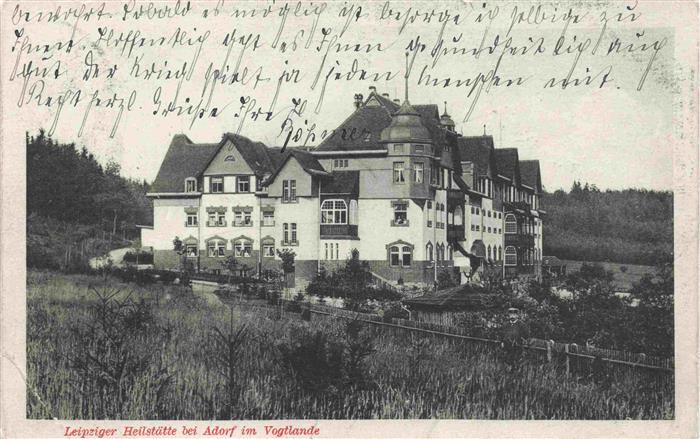 bewahrt. Sobald es möglich ist besorge ich selbige zu
Ihnen. Hoffentlich geht es Ihnen gesundheitlich auch
gut der Krieg spielt ja jeden Menschen mit.
Recht herzl. Grüße Ihre
Böhmer
Leipziger Heilstätte bei Adorf im Vogtlande